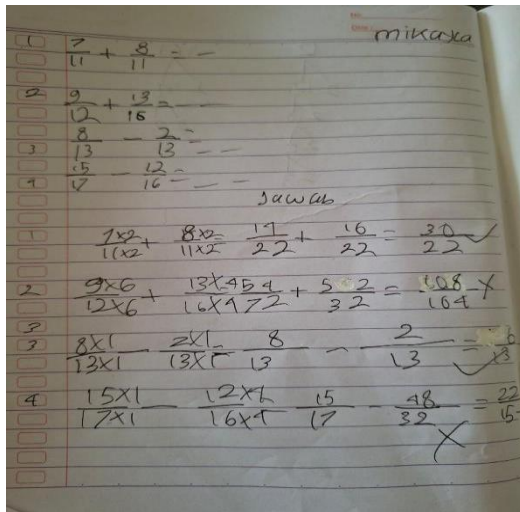 mikayla
1 7/11 + 8/11 = —
2 9/12 + 13/16 = — —
3 8/13 - 2/13 = — —
4 15/17 - 12/16 = — —
Jawab
1 7x2/11x2 + 8x2/11x2 = 14/22 + 16/22 = 30/22 ✓
2 9x6/12x6 + 13x4/16x4 54/72 + 52/32 = 108/104 X
3
3 8x1/13x1 - 2x1/13x1 = 8/13 - 2/13 = 6/13 ✓
4 15x1/17x1 - 12x4/16x4 15/17 - 48/32 = 22/15 X